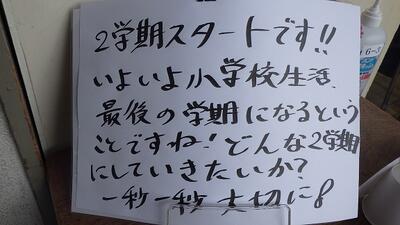 2学期スタートです!!
いよいよ小学校生活、
最後の学期になるという
ことですね!どんな2学期
にしていきたいか?
一秒一秒大切に